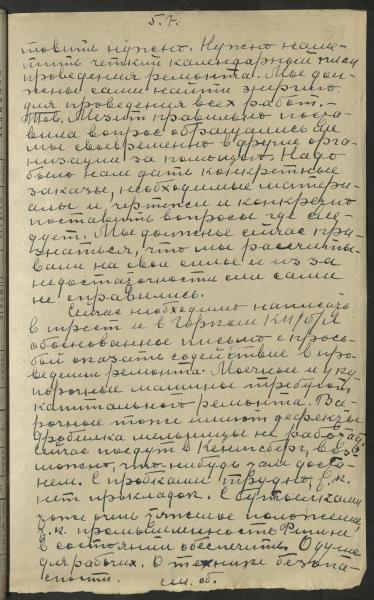 5.7.
товить нужно. Нужно наме-
тить четкий календарный план
проведения ремонта. Мы дол-
жны сами найти энергию
для проведения всех работ. -
Тов. правильно поста-
вила вопрос обращались ли
мы своевременно в другие орга-
низации за помощью. Надо
было нам дать конкретные
заказы, необходимые матери-
алы и чертежи и конкретно
поставить вопросы где сле-
дует. Мы должны сейчас при-
знаться, что мы рассчиты-
вали на свои силы и из за
недостаточности сил сами
не справились.
Сейчас необходимо написать
в трест и в Горком КП/б/Л
обоснованное письмо с прось-
бой оказать содействие в про-
ведении ремонта. Моечные и уку-
порочные машины требуют
капитального ремонта. Ва-
рочные тоже имеют дефекты
Дробилка мельницы не работает
Сейчас поедут в Кенигсберг, воз-
можно, что нибудь там доста-
нем. С пробками трудно, т.к.
нет прокладок. С бутылками
тоже очень тяжелое положение,
т.к. промышленность не
в состоянии обеспечить. О душе
для рабочих. О технике безопа-
сности.
см. об.